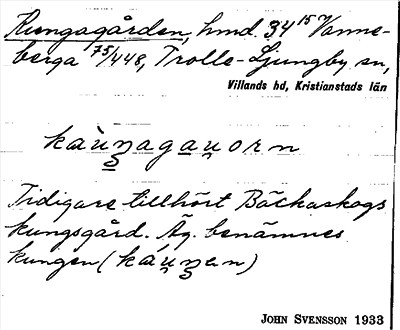 Kungagården, hmd. 34 15 Vanne-
berga 75/448, Trolle-Ljungby sn,
Villands hd, Kristianstads län
kàu̯ŋagau̯orn
Tidigare tillhört Bäckaskogs
kungsgård. Äg. benämnes
kungen (káu̯ŋen)
JOHN SVENSSON 1933